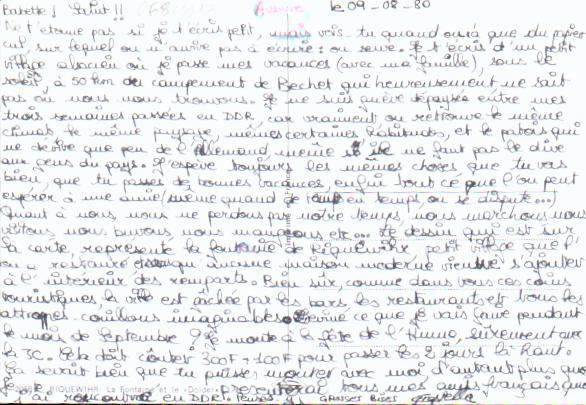 Babette! Salut!! le 09-08-80
Ne t'étonne pas si je t'écris petit, mais vois-tu quand on n'a que du papier
cul, sur lequel on n'arrive pas à écrire: on serre. Je t'écris d'un petit
village alsacien où je passe mes vacances (avec ma famille), sous le
soleil, à 50 km du campement de Bechet qui heureusement ne sait
pas où nous nous trouvons. Je ne suis guère dépaysée entre mes
trois semaines passées en DDR, car vraiment on retrouve le même
climat, le même paysage, mêmes certaines habitudes, et le patois qui
ne dérive que peu de l'Allemand même si il ne faut pas le dire
aux gens du pays. J'espère toujours les mêmes choses que tu vas
bien, que tu passes de bonnes vacances enfin tout ce que l'on peut
espérer à une amie (même quand de temps en temps on se dispute...)
Quant à nous nous ne perdons pas notre temps, nous marchons, nous
visitons, nous buvons nous mangeons etc... Le dessin qui est sur
la carte représente la fontaine de Riquewihr petit village que l'
on a restauré sans qu'aucune maison moderne vienne s'ajouter
à l'intérieur des remparts. Bien sûr, comme dans tous ces coins
touristiques la ville est gâchée par les bars les restaurants et tous les
attrapes-couillons imaginables. ce que je vais faire pendant
le mois de Septembre? Je monte à la fête de l'Huma, sûrement avec
la JC. Elle doit coûter 300F + 100F pour passer les 2 jours là-haut.
Ça serait bien que tu puisses monter avec moi d'autant plus que
je tous mes amis français que
j'ai rencontré en DDR. GROSSES BISES
RIQUEWIHR. La Fontaine et le «Dolder»